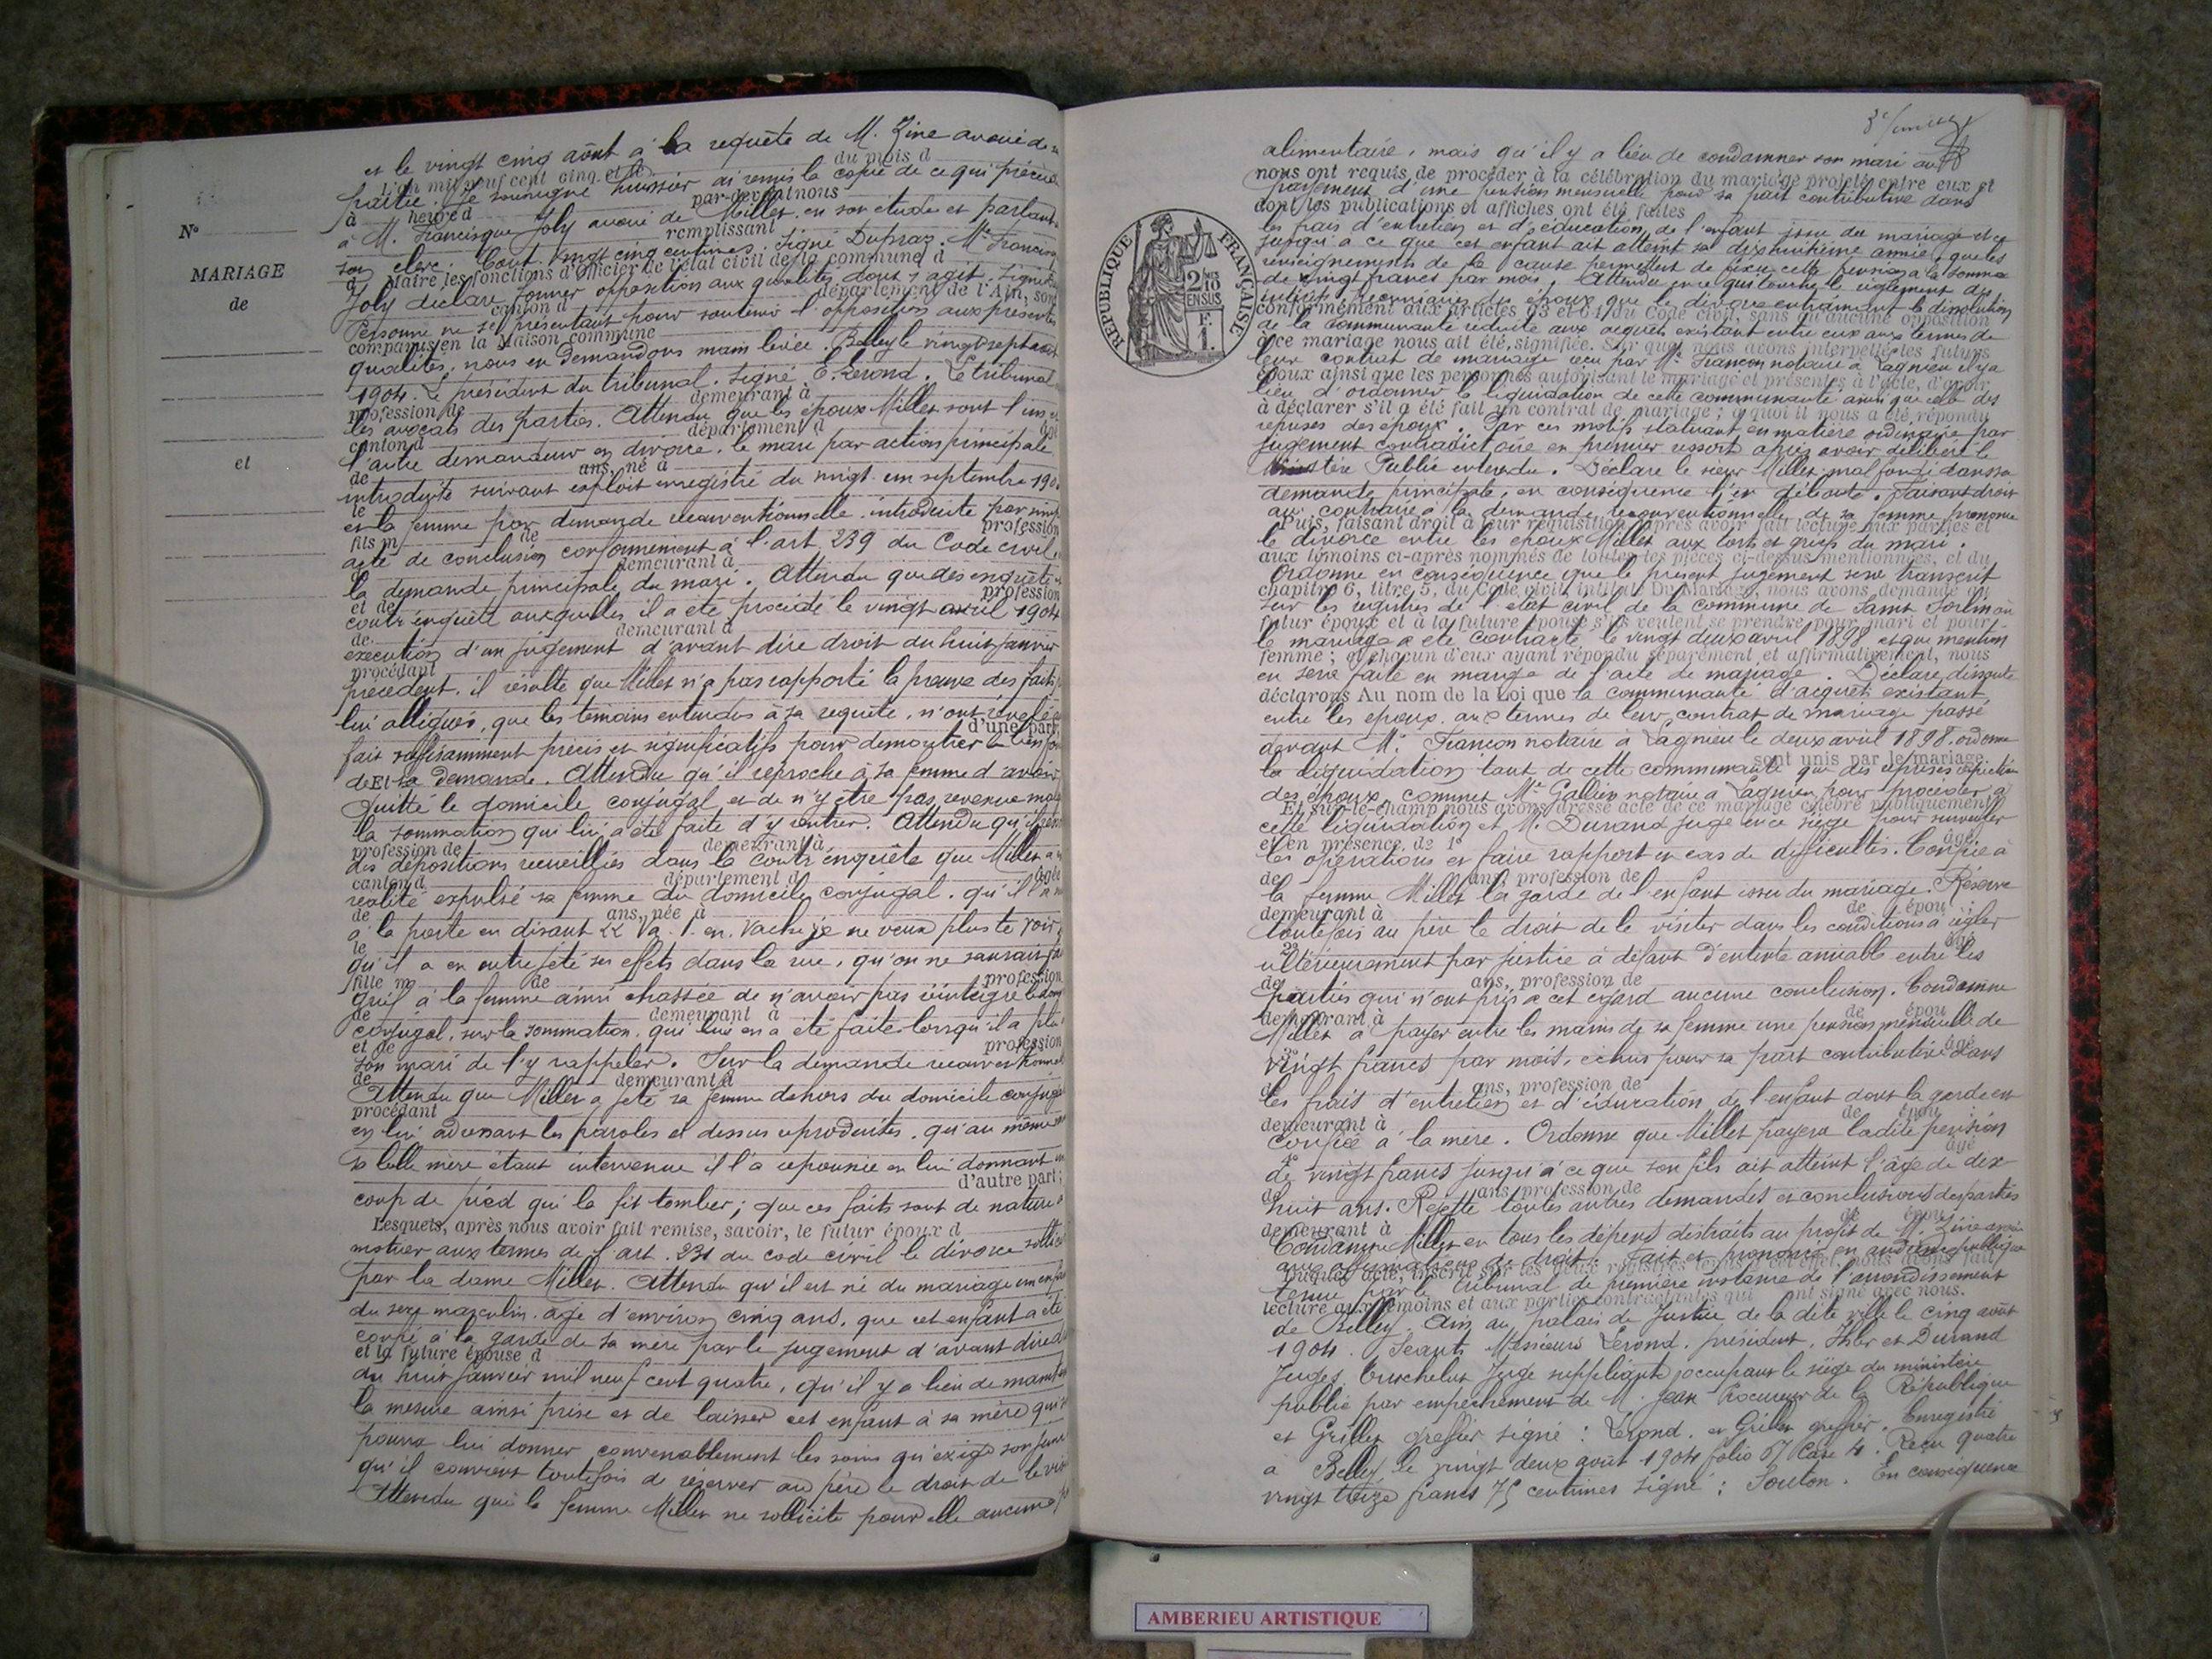 et le vingt cinq août à la requête de M. Zine avoué de
L'an mil neuf cent cinq, et le du mois d
partie. Je soussigné huissier ai remis la copie de ce qui précède
à heure d par-devant nous
à M. Francisque Joly avoué de Millet en son étude et parlant
remplissant
son clerc. Cout vingt cinq centimes. Signé Dupraz. Me Francisque
Maire les fonctions d'Officier de l'état civil de la commune d
Joly déclare former opposition aux qualités dont s'agit. Signé
canton d département de l'Ain, sont
Personne ne se présentant pour soutenir l'opposition aux présentes
comparus en la Maison commune
qualités, nous en demandons main levée. Belley le vingt sept août
1904. Le président du tribunal. Signé E. Lerond. Le tribunal
profession de demeurant à
les avocats des parties. Attendu que les époux Millet sont l'un et
canton d département d
l'autre demandeur en divorce. le mari par action principale
de ans, né à
introduite suivant exploit enregistré du vingt un septembre 190
le
et la femme par demande reconventionnelle introduite par simple
fils m de profession
acte de conclusion conformément à l'art 239 du Code civil
demeurant à
la demande principale du mari. Attendu que des enquête
et de profession
contr'enquête auxquelles il a été procédé le vingt avril 1904
de demeurant à
exécution d'un jugement d'avant dire droit du huit janvier
procédant
précédent. il résulte que Millet n'a pas rapporté la preuve des faits
lui allégués, que les témoins entendus à sa requête, n'ont révélé
d'une part;
fait suffisamment précis et significatifs pour démontrer le bien fon
de Et sa demande. Attendu qu'il reproche à sa femme d'avoir
quitté le domicile conjugal et de n'y être pas revenue mal
la sommation qui lui a été faite d'y rentrer. Attendu qu'il
profession de demeurant à
des dépositions recueillies dans la contr'enquête que Millet a
canton d département d âgée
réalité expulsé sa femme du domicile conjugal. qu'il l'a
de ans, née à
à la porte en disant "Va t'en, vache je ne veux plus te voir
le
qu'il a en outre jeté ses effets dans la rue, qu'on ne saurait
fille m de profession
grief à la femme ainsi chassée de n'avoir pas réintégré le dom
de demeurant à
conjugal, sur la sommation qui lui en a été faite lorsqu'il a plu
et de profession
son mari de l'y rappeler. Sur la demande reconventionnel
de demeurant à
Attendu que Millet a jeté sa femme dehors du domicile conjugal
procédant
en lui adressant les paroles ci dessus reproduites. qu'au même
sa belle mère étant intervenue il l'a repoussée en lui donnant un
d'autre part;
coup de pied qui la fit tomber; que ces faits sont de nature
Lesquels, après nous avoir fait remise, savoir, le futur époux d
motiver aux termes de l'art. 231 du code civil le divorce
par la dame Millet. Attendu qu'il est né du mariage un enfant
du sexe masculin âgé d'environ cinq ans. que cet enfant a été
confié à la garde de sa mère par le jugement d'avant dire d
et la future épouse d
du huit janvier mil neuf cent quatre, qu'il y a lieu de maint
la mesure ainsi prise et de laisser cet enfant à sa mère qui
pourra lui donner convenablement les soins qu'exige son jeune
qu'il convient toutefois de réserver au père le droit de le
Attendu que la femme Millet ne sollicite pour elle aucune
No
MARIAGE
de
et
alimentaire, mais qu'il y a lieu de condamner son mari au
nous ont requis de procéder à la célébration du mariage projeté entre eux et
payement d'une pension mensuelle pour sa part contributive dans
dont les publications et affiches ont été faites
les frais d'entretien et d'éducation de l'enfant issu du mariage et ce
jusqu'à ce que cet enfant ait atteint sa dix huitième année, que les
renseignements de la cause permettent de fixer cette pension à la somme
de vingt francs par mois. Attendu en ce qui touche le règlement des
intérêts pécuniaires des époux que le divorce entraînant la dissolution
conformément aux articles 63 et 64 du Code civil, sans qu'aucune opposition
de la communauté réduite aux acquêts existant entre eux aux termes de
à ce mariage nous ait été signifiée. Sur quoi nous avons interpellé les futurs
leur contrat de mariage reçu par Me Françon notaire à Lagnieu il y a
époux ainsi que les personnes autorisant le mariage et présentes à l'acte, d'avoir
lieu d'ordonner la liquidation de cette communauté ainsi que celle des
à déclarer s'il a été fait un contrat de mariage; à quoi il nous a été répondu
reprises des époux. Par ces motifs statuant en matière ordinaire par
jugement contradictoire en premier ressort après avoir délibéré le
Ministère Public entendu. Déclare le sieur Millet mal fondé dans sa
demande principale, en conséquence l'en déboute. Faisant droit
au contraire à la demande reconventionnelle de sa femme prononce
Puis, faisant droit à leur réquisition, après avoir fait lecture aux parties et
le divorce entre les époux Millet aux torts et griefs du mari.
aux témoins ci-après nommés de toutes les pièces ci-dessus mentionnées, et du
Ordonne en conséquence que le présent jugement sera transcrit
chapitre 6, titre 5, du Code civil, intitulé Du Mariage, nous avons demandé au
sur les registres de l'état civil de la commune de Saint Sorlin où
futur époux et à la future épouse s'ils veulent se prendre pour mari et pour
le mariage a été contracté le vingt deux avril 1898 et que mention
femme; et chacun d'eux ayant répondu séparément et affirmativement, nous
en sera faite en marge de l'acte de mariage. Déclare dissoute
déclarons Au nom de la Loi que la communauté d'acquêts existant
entre les époux aux termes de leur contrat de mariage passé
devant Me Françon notaire à Lagnieu le deux avril 1898. ordonne
sont unis par le mariage.
la liquidation tant de cette communauté que des reprises respectives
des époux, commet Me Gallien notaire à Lagnieu pour procéder à
Et sur-le-champ nous avons dressé acte de ce mariage célébré publiquement
cette liquidation et M. Durand juge en ce siège pour surveiller
et en présence de 1° âgé
les opérations et faire rapport en cas de difficultés. Confie à
de ans, profession de
la femme Millet la garde de l'enfant issu du mariage. Réserve
demeurant à de épou ;
toutefois au père le droit de le visiter dans les conditions à régler
2° âgé
ultérieurement par justice à défaut d'entente amiable entre les
de ans, profession de
parties qui n'ont pris à cet égard aucune conclusion. Condamne
demeurant à de épou
Millet à payer entre les mains de sa femme une pension mensuelle de
3° âgé
vingt francs par mois, échus pour sa part contributive dans
de ans, profession de
les frais d'entretien et d'éducation de l'enfant dont la garde est
demeurant à de épou
confiée à la mère. Ordonne que Millet payera ladite pension
4° âgé
de vingt francs jusqu'à ce que son fils ait atteint l'âge de dix-
de ans, profession de
huit ans. Rejette toutes autres demandes et conclusions des parties
demeurant à de épou
Condamne Millet en tous les dépens distraits au profit de M. Zine avoué
aux affirmations de droit. Fait et prononcé en audience publique
tenue par le tribunal de première instance de l'arrondissement
lecture aux témoins et aux parties contractantes qui ont signé avec nous.
de Belley. Ain au palais de Justice de la dite ville le cinq août
1904. Séants Messieurs Lerond. président. et Durand
Juges. Juge suppléant occupant le siège du ministère
public par empêchement de M. Jean Procureur de la République
et Grillet greffier signé: Lerond. et Grillet greffier. Enregistré
à Belley le vingt deux août 1904 folio 67 Case 4. Reçu quatre
vingt treize francs 75 centimes Signé: Souton. En conséquence
REPUBLIQUE FRANÇAISE
2 10 EN SUS
F. 1.
AMBERIEU ARTISTIQUE